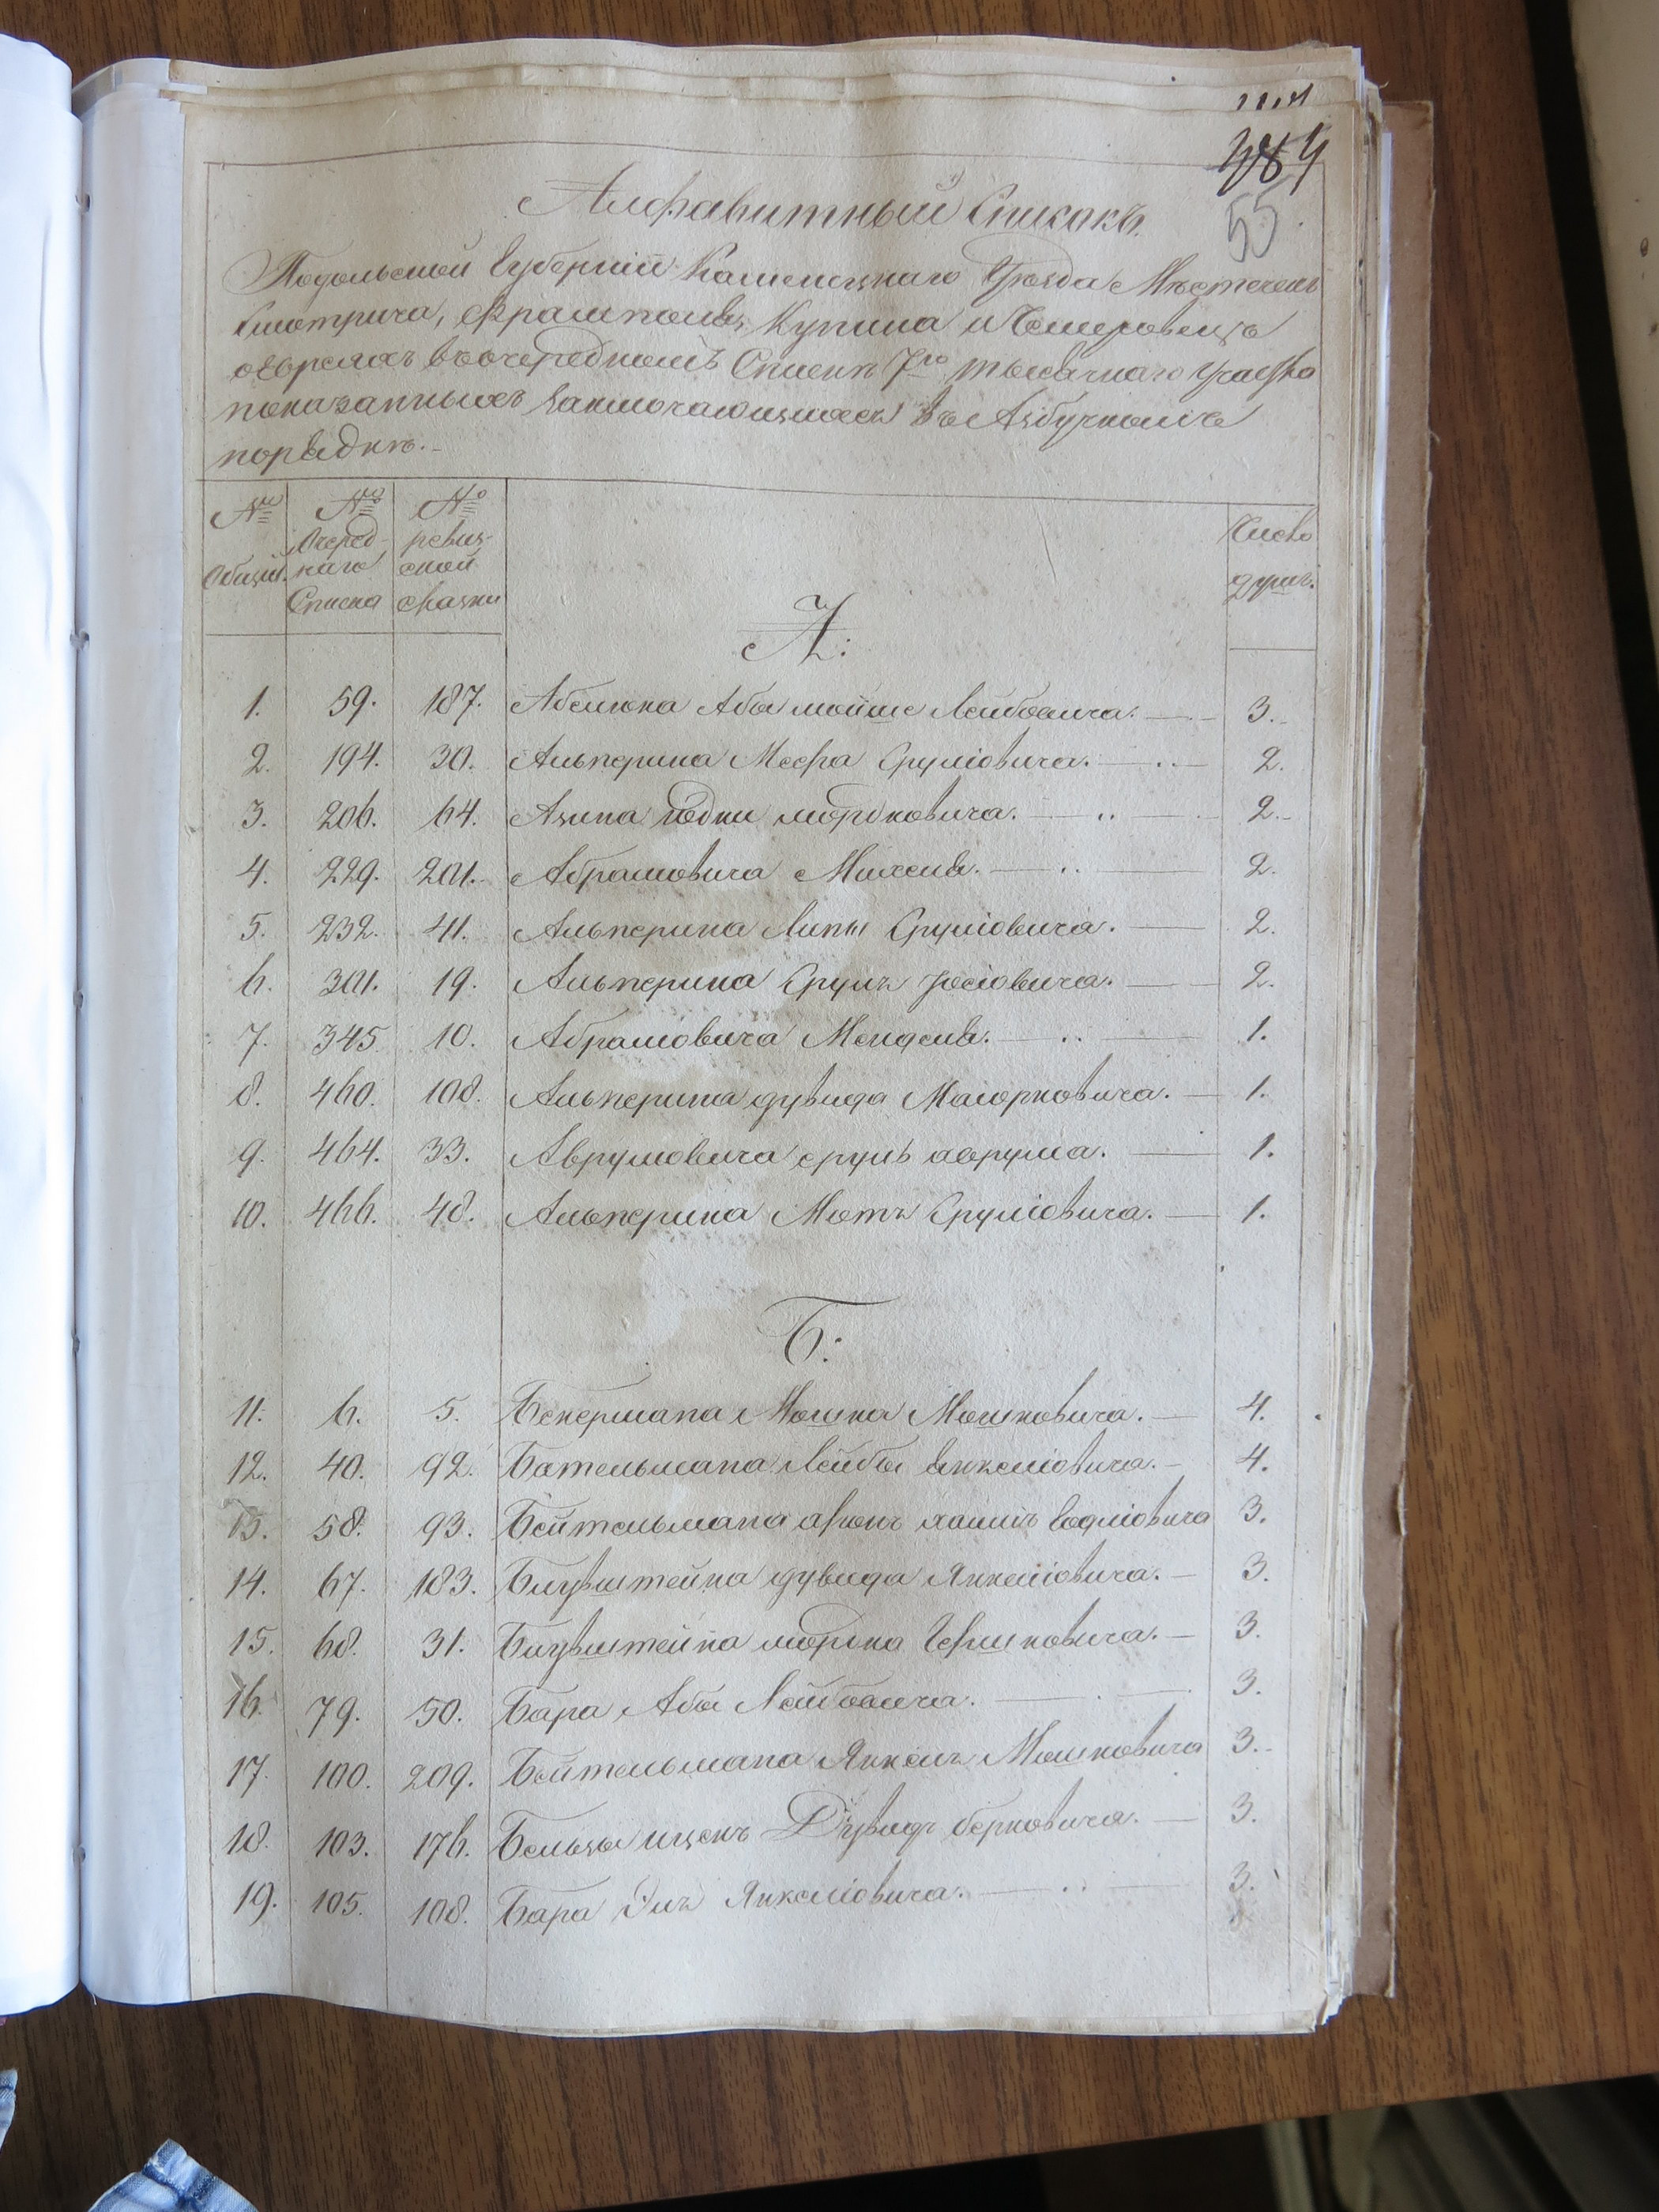 384
55
Алфавитный Списокъ
Подольской Губерніи Каменецкаго Уѣзда Мѣстечекъ
Смотрича, Фрамполя, Купина и Чемеровецъ
о Евреяхъ въ очередномъ Спискѣ 7го тысячнаго Участка
показанныхъ заключающимся въ Азбучномъ
порядкѣ.
№ Общій.
№ Очереднаго Списка
№ ревизской сказки
Число душъ.
А:
1. 59. 187. Абелюка Абы Мойше Лейбовича. 3.
2. 194. 30. Альперина Меера Сруліовича. 2.
3. 206. 64. Азина Іодки Моріковича. 2.
4. 229. 201. Абрамовича Михеля. 2.
5. 232. 41. Альперина Липы Сруліовича. 2.
6. 301. 19. Альперина Срулъ Іосіовича. 2.
7. 345 10. Абрамовича Менделя. 1.
8. 460. 108. Альперина Дувида Маіорковича. 1.
9. 464. 33. Аврумовича Сруль Аврума. 1.
10. 466. 48. Альперина Мотъ Сруліовича. 1.
Б:
11. 6. 5. Бекермана Мошка Мошковича. 4.
12. 40. 92. Бательмана Лейбы Янкеліовича. 4.
13. 58. 93. Бейтельмана Аронъ Хаимъ 3.
14. 67. 183. Блувштейна Дувида Янкеліовича. 3.
15. 68. 31. Блувштейна Моріка Гершковича. 3.
16. 79. 50. Бара Абы Лейбовича. 3.
17. 100. 209. Бейтельмана Янкель Мошковича 3.
18. 103. 176. Бельцы Ицекъ Дувидъ Берковича. 3.
19. 105. 108. Бара Элъ Янкеліовича. 3.